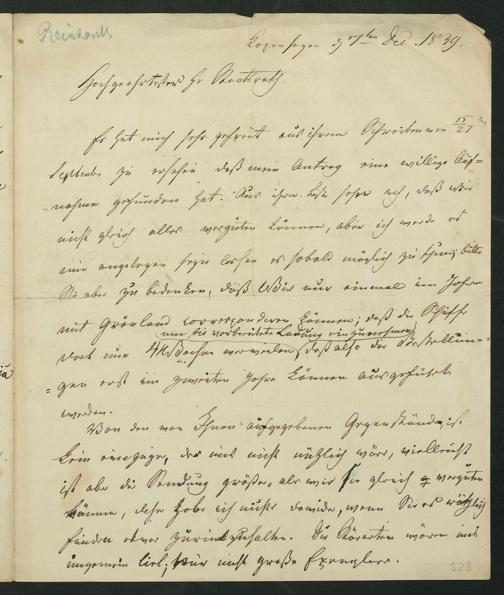 Reinhardt
Kopenhagen d 7ten Dec. 1839.
Hochgeehrtester Hr Staatsrath
Es hat mich sehr gefreut aus ihrem Schreiben von 15/27
September zu ersehen daß mein Antrag eine willige Auf=
nahme gefunden hat. Aus ihrer sehe ich, daß Wir
nicht gleich alles vergüten können, aber ich werde es
mir angelegen seyn lassen es sobald möglich zu thun; bitte
Sie aber zu bedenken, daß Wir nur einmal im Jahre
mit Grönland correspondiren können; daß die Schiffe
um die vorbereitete Ladung einzunehmen
dort nur 4 Wochen verweilen, daß also die Bestellun=
=gen erst im zweiten Jahre können ausgeführt
werden.
Von den von Ihnen aufgegebenen Gegenständen ist
kein einziger, der uns nicht nützlich wäre, vielleicht
ist aber die Sendung größer, als wir Sie gleich vergüten
können, daher habe ich nichts dawider, wenn Sie es räthlich
finden etwas zurückzuhalten. Die wären uns
ungemein lieb; nur nicht große Exemplare.
528